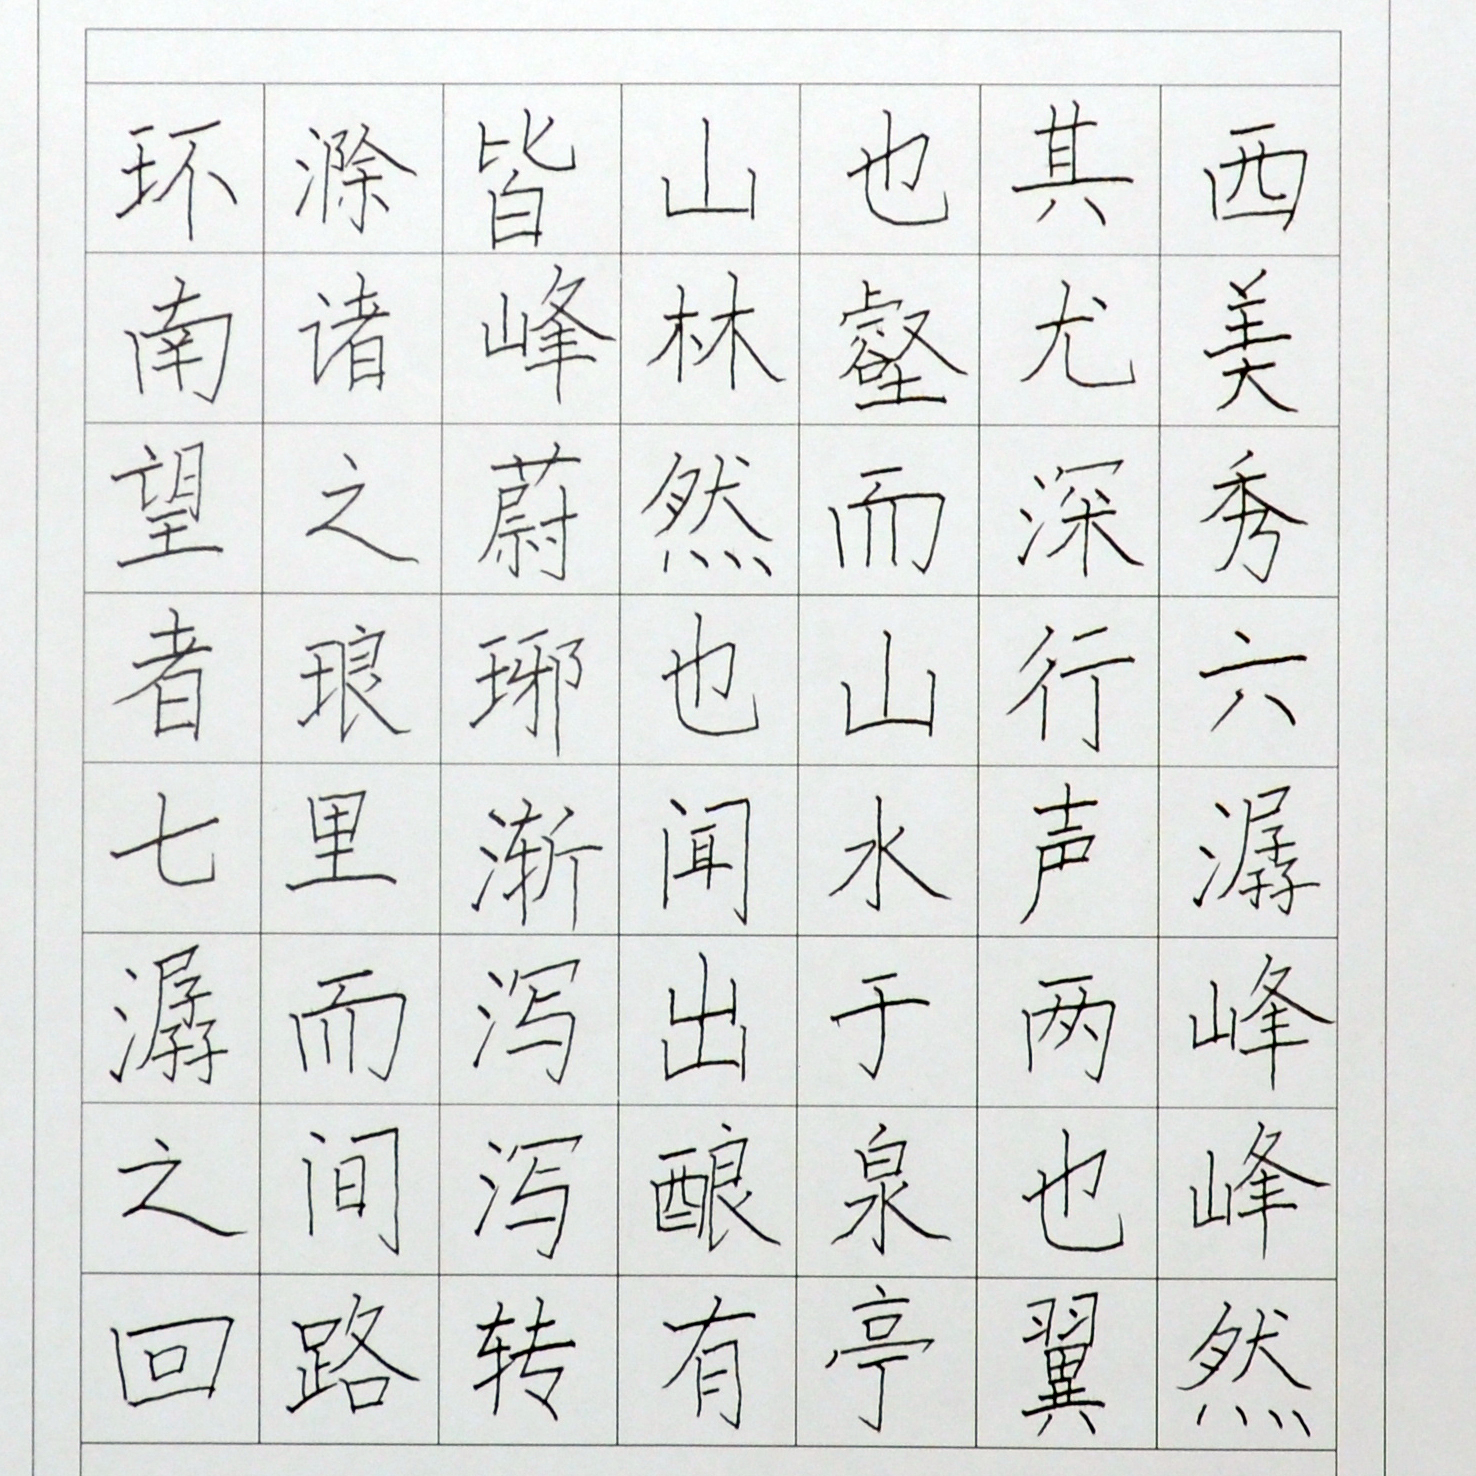 环滁皆山也其西
南诸峰林壑尤美
望之蔚然而深秀
者琅琊也山行六
七里渐闻水声潺
潺而泻出于两峰
之间泻酿泉也峰
回路转有亭翼然